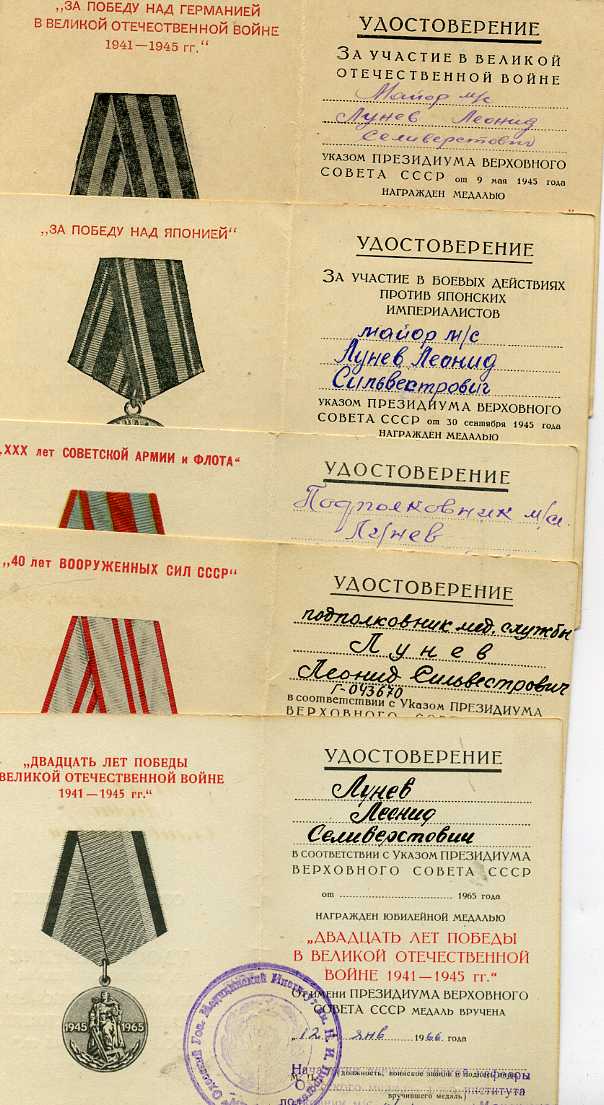 „ЗА ПОБЕДУ НАД ГЕРМАНИЕЙ
В ВЕЛИКОЙ ОТЕЧЕСТВЕННОЙ ВОЙНЕ
1941—1945 гг.“
УДОСТОВЕРЕНИЕ
ЗА УЧАСТИЕ В ВЕЛИКОЙ
ОТЕЧЕСТВЕННОЙ ВОЙНЕ
Майор м/с
Лунев Леонид
Селиверстович
УКАЗОМ ПРЕЗИДИУМА ВЕРХОВНОГО
СОВЕТА СССР от 9 мая 1945 года
НАГРАЖДЕН МЕДАЛЬЮ
„ЗА ПОБЕДУ НАД ЯПОНИЕЙ“
УДОСТОВЕРЕНИЕ
ЗА УЧАСТИЕ В БОЕВЫХ ДЕЙСТВИЯХ
ПРОТИВ ЯПОНСКИХ
ИМПЕРИАЛИСТОВ
майор м/с
Лунев Леонид
Сильвестрович
УКАЗОМ ПРЕЗИДИУМА ВЕРХОВНОГО
СОВЕТА СССР от 30 сентября 1945 года
НАГРАЖДЕН МЕДАЛЬЮ
„XXX лет СОВЕТСКОЙ АРМИИ и ФЛОТА“
УДОСТОВЕРЕНИЕ
Подполковник м/сл.
Лунев
„40 лет ВООРУЖЕННЫХ СИЛ СССР“
УДОСТОВЕРЕНИЕ
подполковник мед. службы
Лунев
Леонид Сильвестрович
Г-043670
в соответствии с Указом ПРЕЗИДИУМА
ВЕРХОВНОГО
„ДВАДЦАТЬ ЛЕТ ПОБЕДЫ
ВЕЛИКОЙ ОТЕЧЕСТВЕННОЙ ВОЙНЕ
1941—1945 гг.“
1945 1965
УДОСТОВЕРЕНИЕ
Лунев
Леонид
Селиверстович
В СООТВЕТСТВИИ С УКАЗОМ ПРЕЗИДИУМА
ВЕРХОВНОГО СОВЕТА СССР
от 1965 года
НАГРАЖДЕН ЮБИЛЕЙНОЙ МЕДАЛЬЮ
„ДВАДЦАТЬ ЛЕТ ПОБЕДЫ
В ВЕЛИКОЙ ОТЕЧЕСТВЕННОЙ
ВОЙНЕ 1941—1945 гг.“
От имени ПРЕЗИДИУМА ВЕРХОВНОГО
СОВЕТА СССР МЕДАЛЬ ВРУЧЕНА
„12“ янв 1966 года
Медицинский Институт им. Н. И.
должность, воинское звание и подпись
вручившего медаль)
института